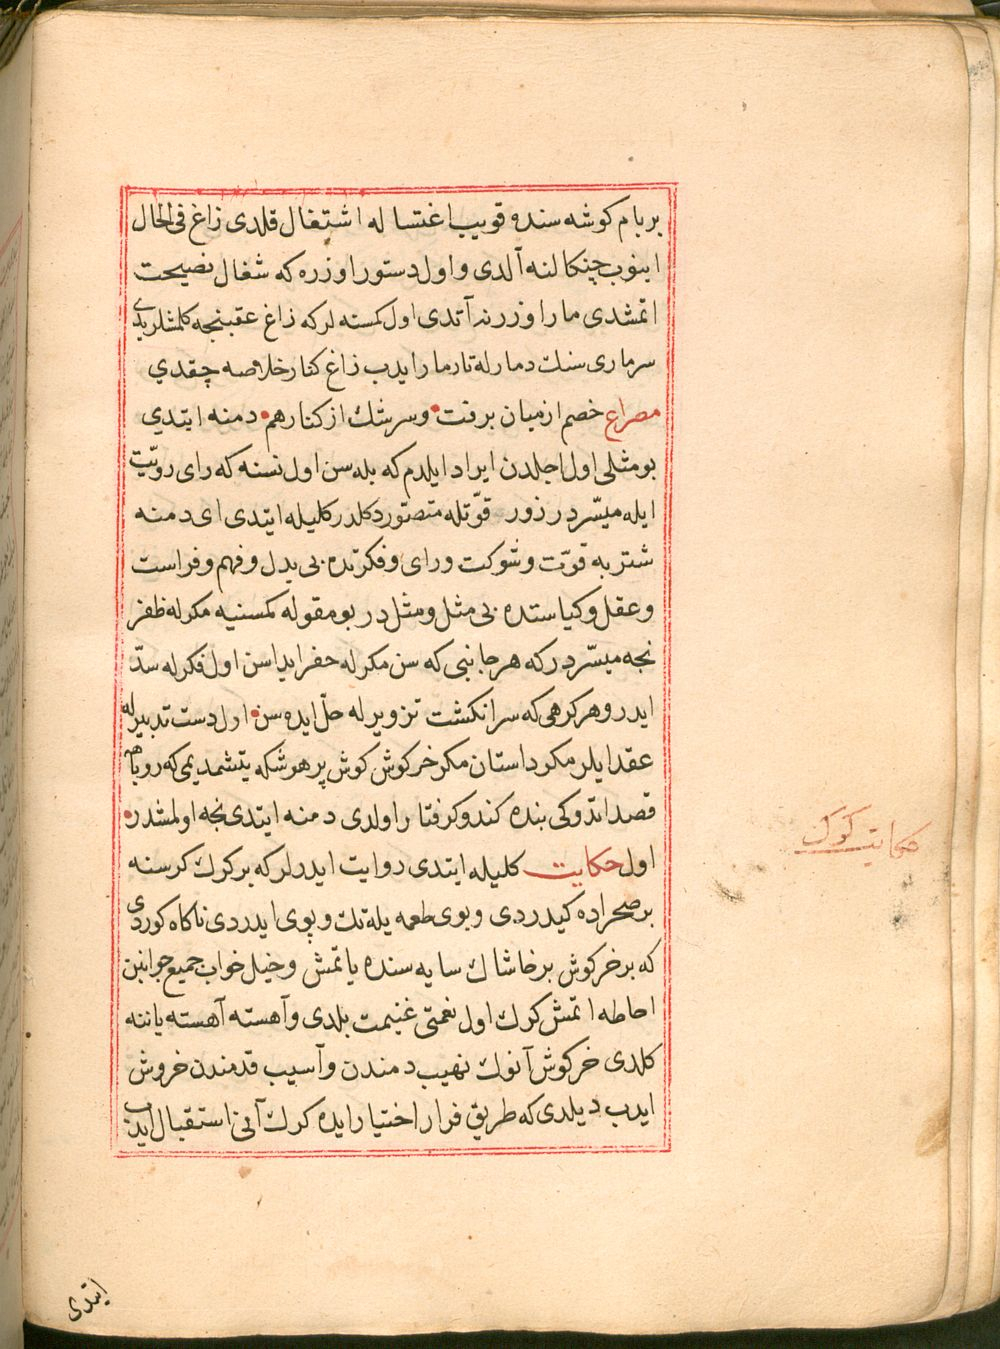 بر بام كوشه سنده قويب اغتساله اشتغال قلدى زاغ فى الحال
اينوب چنكالنه آلدى و اول دستور اوزره كه شغال نصيحت
اتمشدى مار اوزرنه آتدى اول كمسنه لر كه زاغ عقبنجه كلمشلريدى
سر مارى سنك دمارله تارمار ايدب زاغ كنار خلاصه چقدي
مصراع خصم از ميان برفت و سرشك از كنار هم دمنه ايتدي
بو مثلى اول اجلدن ايراد ايلدم كه بله سن اول نسنه كه راى رويّت
ايله ميسّردر زور قوّتله متصوّر دكلدر كليله ايتدى اى دمنه
شتربه قوّت و شوكت و راى و فكرتده بى بدل و فهم و فراست
و عقل و كياستده بى مثل و مثلدر بو مقوله كمسنيه مكرله ظفر
نجه ميسّردر كه هر جانبى كه سن مكرله حفر ايداسن اول فكرله سدّ
ايدر و هر كرهى كه سرانكشت تزويرله حلّ ايده سن اول دست تدبيرله
عقد ايلر مكر داستان مكر خركوش كوش پر هوشكه يتشمديمى كه روباه
قصد اتدوكى بنده كندو كرفتار اولدى دمنه ايتدى نجه اولمشدر
اول حكايت كليله ايتدى روايت ايدرلر كه بر كرك كرسنه
بر صحراده كيدردى و بوى طعمه يله تك و پوى ايدردى ناكاه كوردى
كه بر خركوش بر خاشاك سايه سنده ياتمش و خيل خواب جميع جوانبن
احاطه اتمش كرك اول نعمتى غنيمت بلدى و آهسته آهسته ياننه
كلدى خركوش آنوك نهيب دمندن و آسيب قدمندن خروش
ايدب ديلدى كه طريق فرار اختيار ايده كرك آنى استقبال ايدب
حكايت كرك
ايتدى